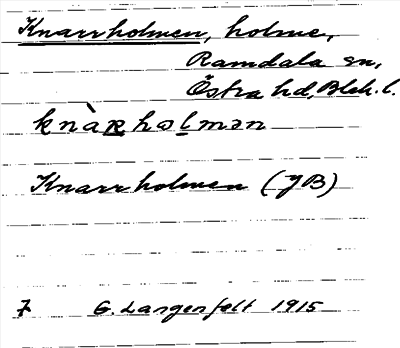 Knarrholmen, holme,
Ramdala sn,
Östra hd, Blek. l.
knàʀhɷlmən
Knarrholmen (JB)
7 G. Langenfelt 1915